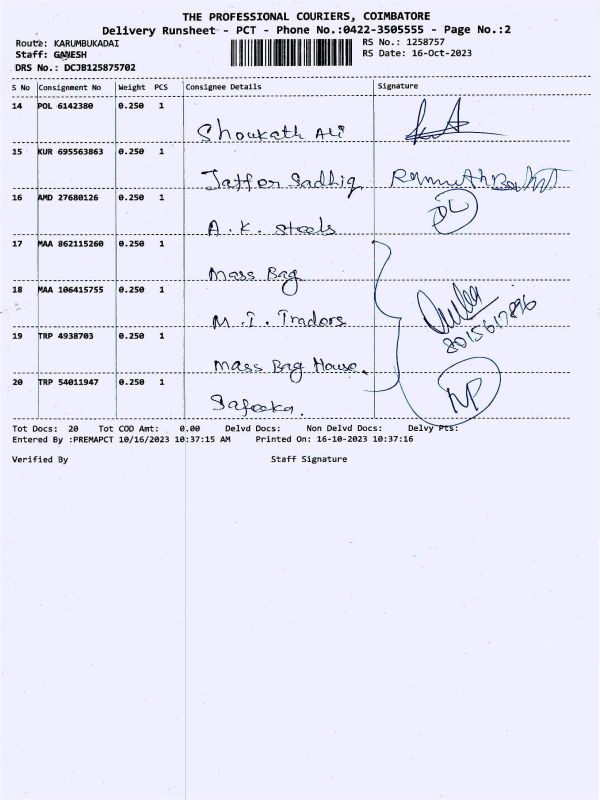 THE PROFESSIONAL COURIERS, COIMBATORE
Delivery Runsheet - PCT - Phone No.:0422-3505555 - Page No.:2
Route: KARUMBUKADAI
RS No.: 1258757
Staff: GANESH
RS Date: 16-Oct-2023
DRS No.: DCJB125875702
S No Consignment No Weight PCS Consignee Details Signature
14 POL 6142380 0.250 1
Showkath Ali
15 KUR 695563863 0.250 1
Jaffer Sadhiq
16 AMD 27680126 0.250 1
A. K. steels
17 MAA 862115260 0.250 1
Mass Bag
18 MAA 106415755 0.250 1
M. I. Tradors
8015617896
19 TRP 4938703 0.250 1
Mass Bag House.
20 TRP 54011947 0.250 1
Safeeka.
Tot Docs: 20 Tot COD Amt: 0.00 Delvd Docs: Non Delvd Docs: Delvy Pts:
Entered By :PREMAPCT 10/16/2023 10:37:15 AM Printed On: 16-10-2023 10:37:16
Verified By Staff Signature